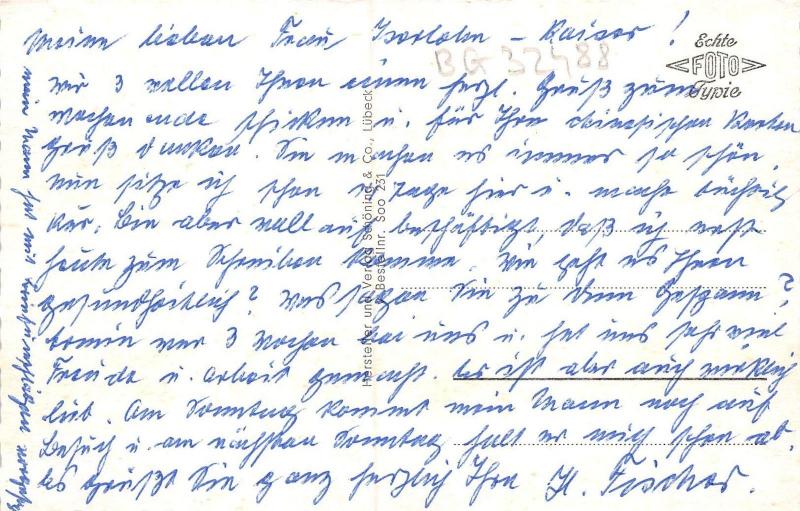 Meine lieben Frau Iserlohn - Kaiser!
Echte
FOTO
Typie
BG 32488
wir 3 wollen Ihnen einen herzl. Gruß zum
Wochenende schicken u. für Ihre Karten
Gruß danken. Sie machen es immer so schön.
Nun sitze ich schon Tage hier u. mache tüchtig
Kur. Bin aber voll auf beschäftigt, daß ich erst
heute zum Schreiben komme. Wie geht es Ihnen
gesundheitlich? Was sagen Sie zu dem Gespann?
war 3 Wochen bei uns u. hat uns sehr viel
Freude u. Arbeit gemacht. Es ist aber auch wirklich
lieb. Am Sonntag kommt mein Mann noch auf
Besuch u. am nächsten Sonntag holt er mich schon ab.
Es grüßt Sie ganz herzlich Ihre H. Fischer.
mein Mann hat mit
Hersteller und Verlag Schöning & Co., Lübeck
Bestellnr. Soo 231